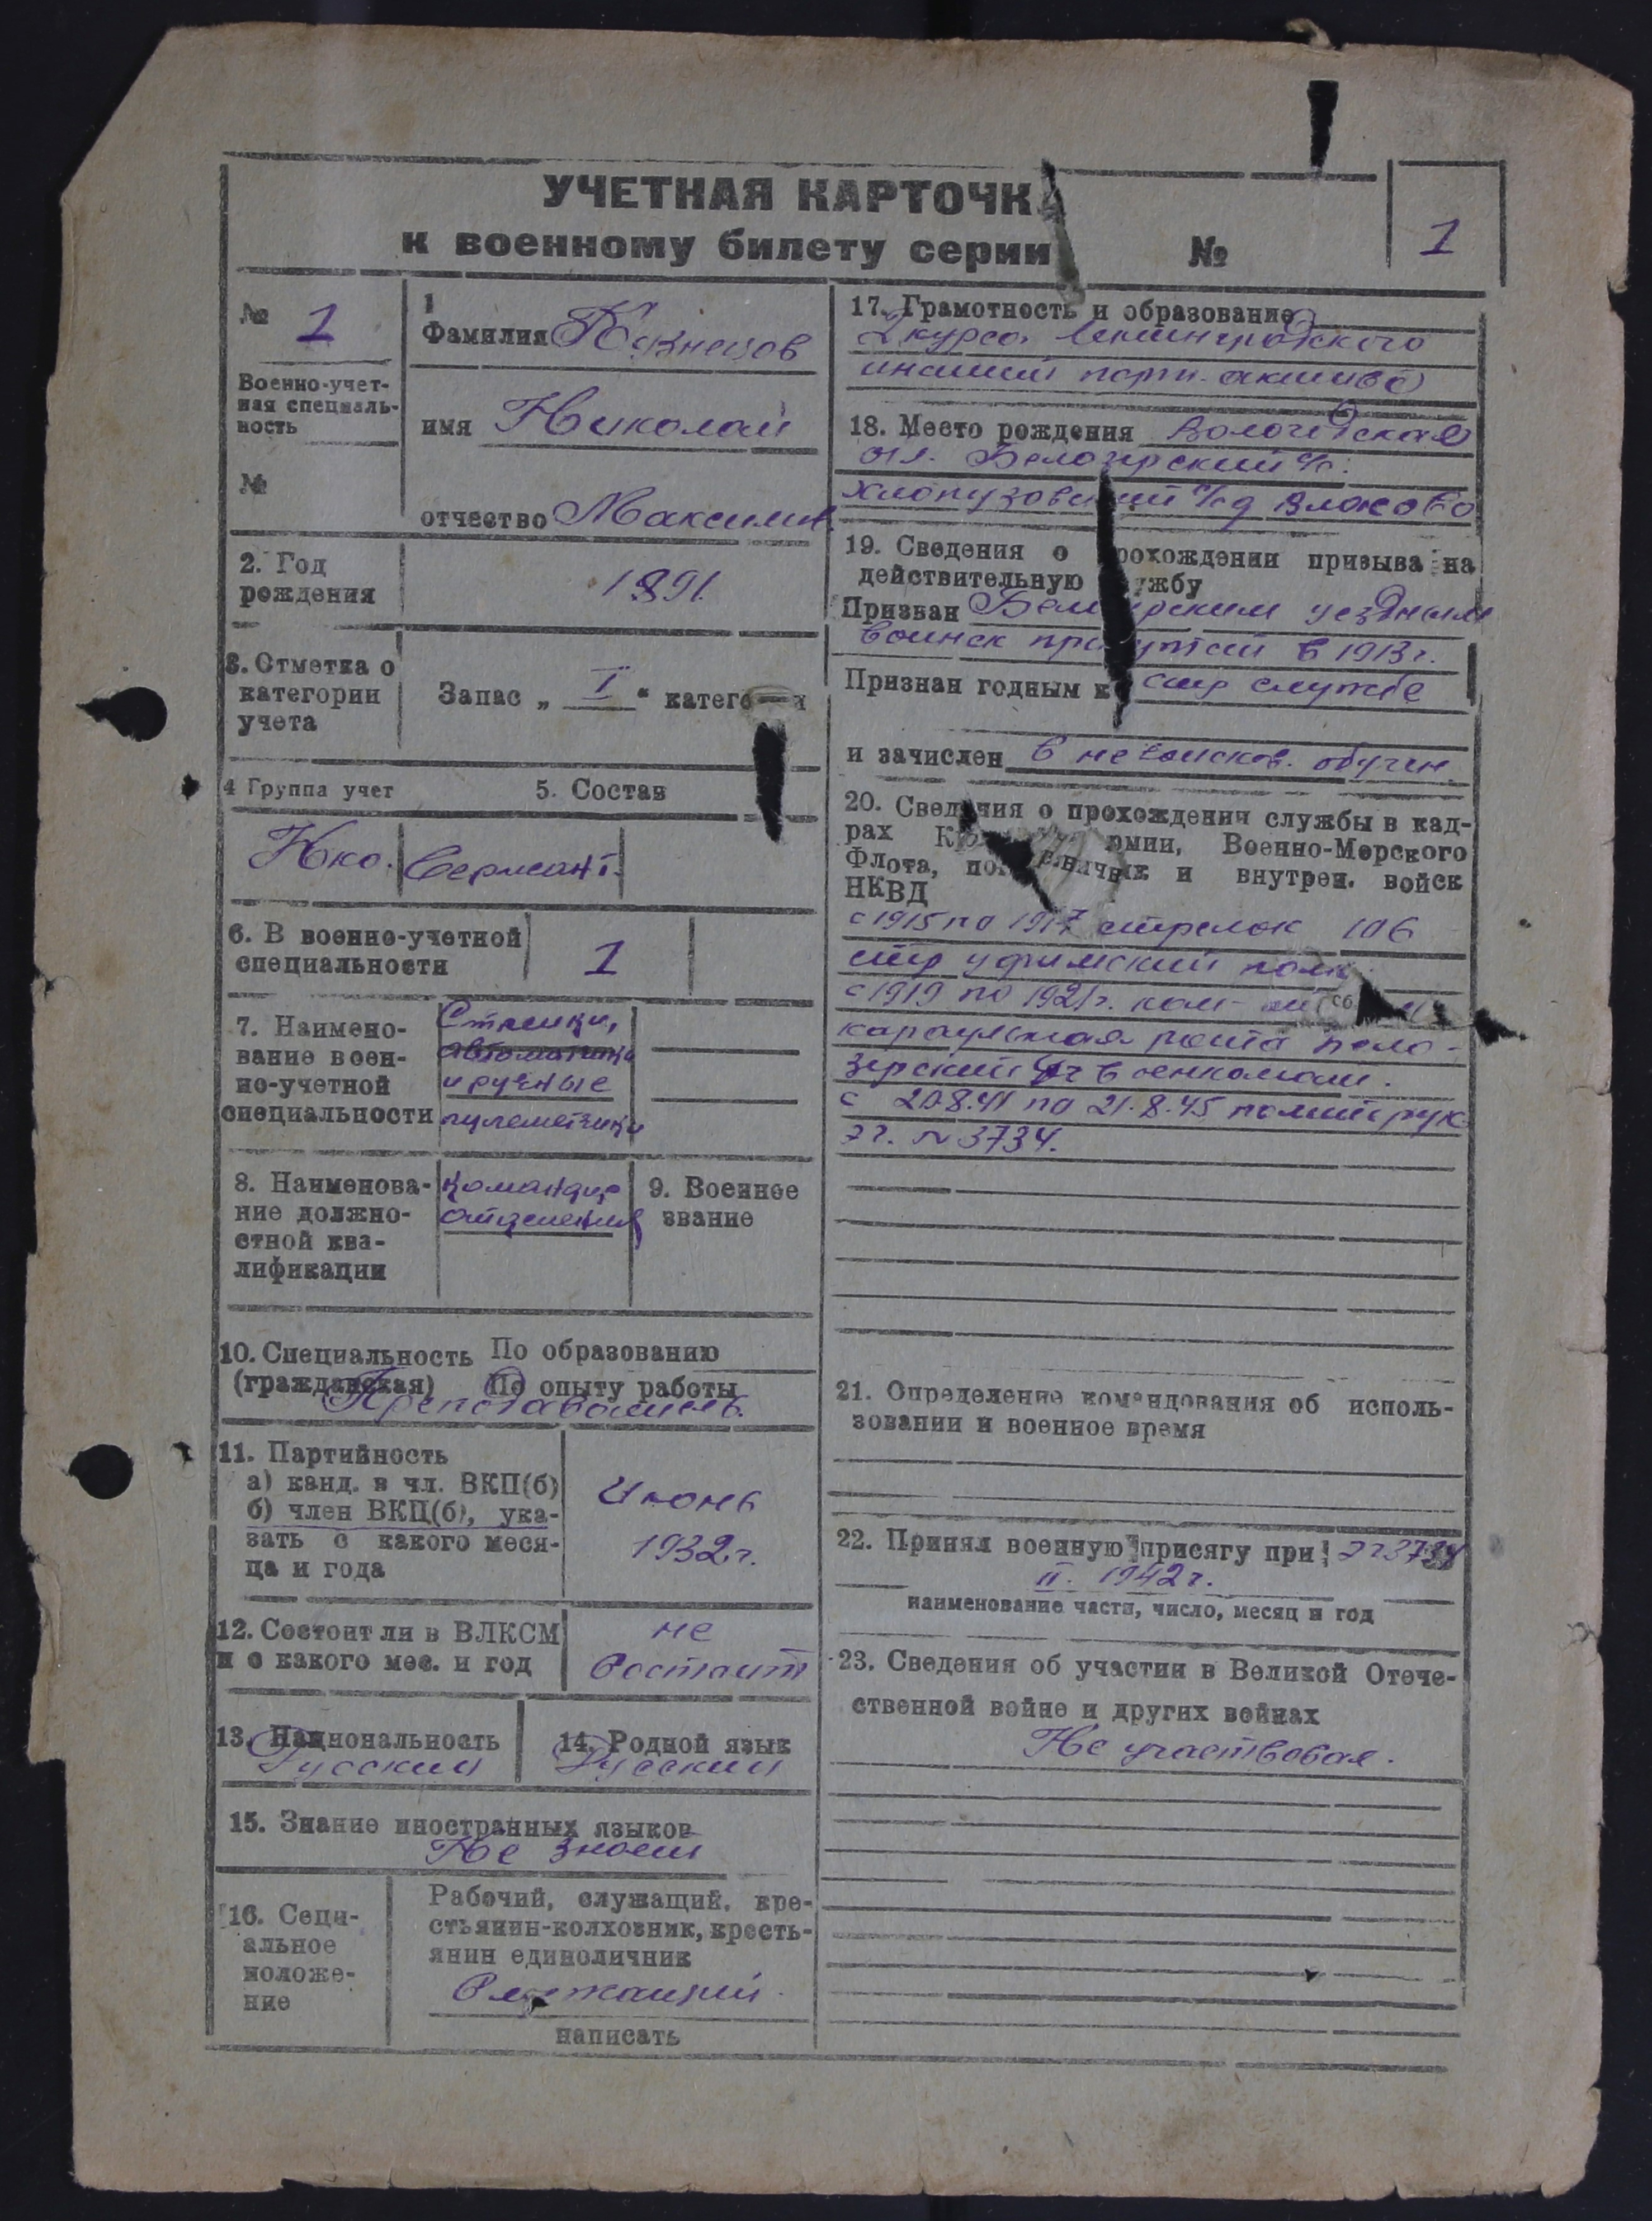 УЧЕТНАЯ КАРТОЧКА
к военному билету серии №
1
№ 1
Военно-учет-
ная специаль-
ность
№
1
Фамилия
имя Николай
отчество Максимов.
2. Год
рождения
1891.
3. Отметка о
категории
учета
Запас „ I “ категории
4 Группа учет
5. Состав
Нко. Сержант.
6. В военно-учетной
специальности
1
7. Наимено-
вание воен-
но-учетной
специальности
Стрелки,
автоматчики
и ручные
пулеметчики
8. Наименова-
ние должно-
стной ква-
лификации
командир
отделения
9. Военное
звание
10. Специальность По образованию
(гражданская) По опыту работы
Преподаватель.
11. Партийность
а) канд. в чл. ВКП(б)
б) член ВКП(б), ука-
зать с какого меся-
ца и года
Июнь
1932 г.
12. Состоит ли в ВЛКСМ
и с какого мес. и год
не
состоит
13. Национальность
Русский
14. Родной язык
Русский
15. Знание иностранных языков
Не знает
16. Соци-
альное
положе-
ние
Рабочий, служащий, кре-
стьянин-колхозник, кресть-
янин единоличник
Служащий.
написать
17. Грамотность и образование
2 курса Ленинградского
парт. актива
18. Место рождения Вологодская
обл. Белозерский
19. Сведения о прохождении призыва на
действительную службу
Призван Белозерским уездным
воинск в 1913 г.
Признан годным к стр службе
и зачислен в не войсков. обучен.
20. Сведения о прохождении службы в кад-
рах Красной Армии, Военно-Морского
Флота, пограничных и внутрен. войск
НКВД
с 1915 по 1917 стрелок 106
стр уфимский полк
с 1919 по 1921 г.
караульная рота Бело-
зерский военкомат.
с 20.8.41 по 21.8.45 политрук
эг. № 3734.
21. Определение командования об исполь-
зовании и военное время
22. Принял военную присягу при эг 3734
II. 1942 г.
наименование части, число, месяц и год
23. Сведения об участии в Великой Отече-
ственной войне и других войнах
Не участвовал.